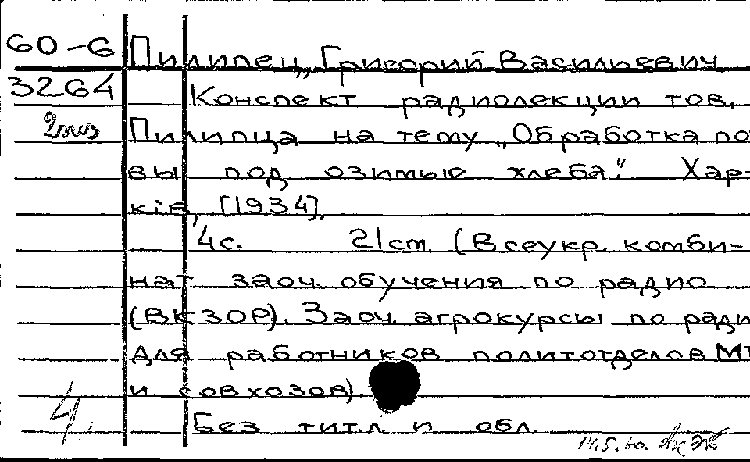 60-6 Пилипец, Григорий Васильевич
3264 Конспект радиолекции тов.
Пилипца на тему „Обработка по
вы под озимые хлеба". Хар-
ків, [1934].
4с. 21cm. (Всеукр. комби-
нат заоч. обучения по радио
(ВКЗОР). Заоч. агрокурсы по ради
для работников политотделов МТ
и совхозов)
4. Без титл. и обл.
14.5.60.